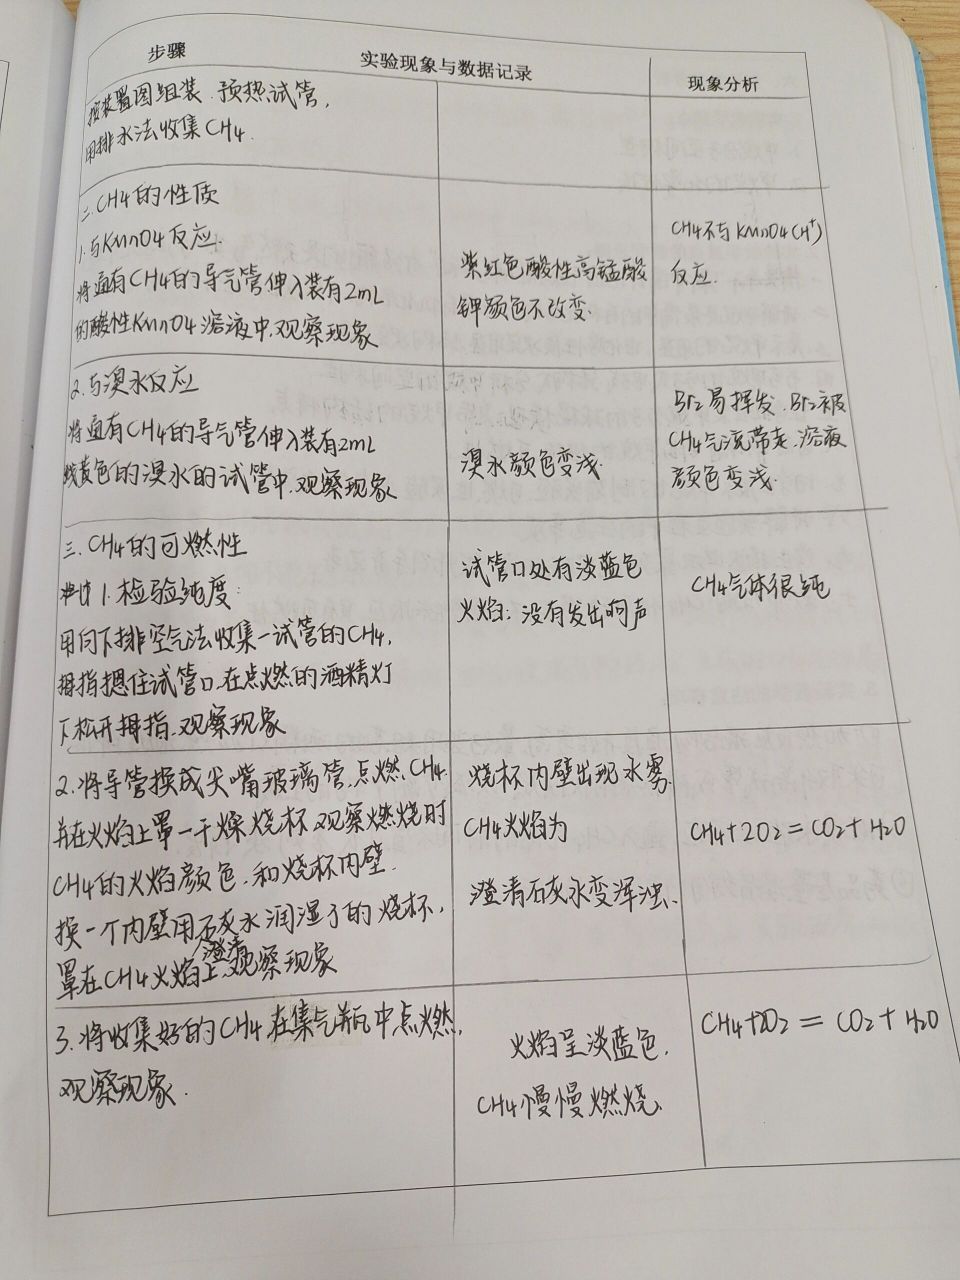 步骤
实验现象与数据记录
现象分析
按装置图组装.预热试管,
用排水法收集CH4.
二.CH4的性质
1.与KMnO4反应.
将通有CH4的导气管伸入装有2mL
的酸性KMnO4溶液中.观察现象
紫红色酸性高锰酸
钾颜色不改变.
CH4不与KMnO4(H+)
反应.
2.与溴水反应
将通有CH4的导气管伸入装有2mL
浅黄色的溴水的试管中.观察现象
溴水颜色变浅.
Br2易挥发.Br2被
CH4气流带走.溶液
颜色变浅.
三.CH4的可燃性
1.检验纯度:
用向下排空气法收集一试管的CH4,
拇指摁住试管口.在点燃的酒精灯
下松开拇指.观察现象
试管口处有淡蓝色
火焰;没有发出响声
CH4气体很纯
2.将导管换成尖嘴玻璃管.点燃CH4.
并在火焰上罩一干燥烧杯.观察燃烧时
CH4的火焰颜色.和烧杯内壁.
换一个内壁用石灰水润湿了的烧杯,
澄清
罩在CH4火焰上.观察现象
烧杯内壁出现水雾.
CH4火焰为
澄清石灰水变浑浊.
CH4+2O2=CO2+H2O
3.将收集好的CH4.在集气瓶中点燃,
观察现象.
火焰呈淡蓝色.
CH4慢慢燃烧.
CH4+2O2=CO2+H2O